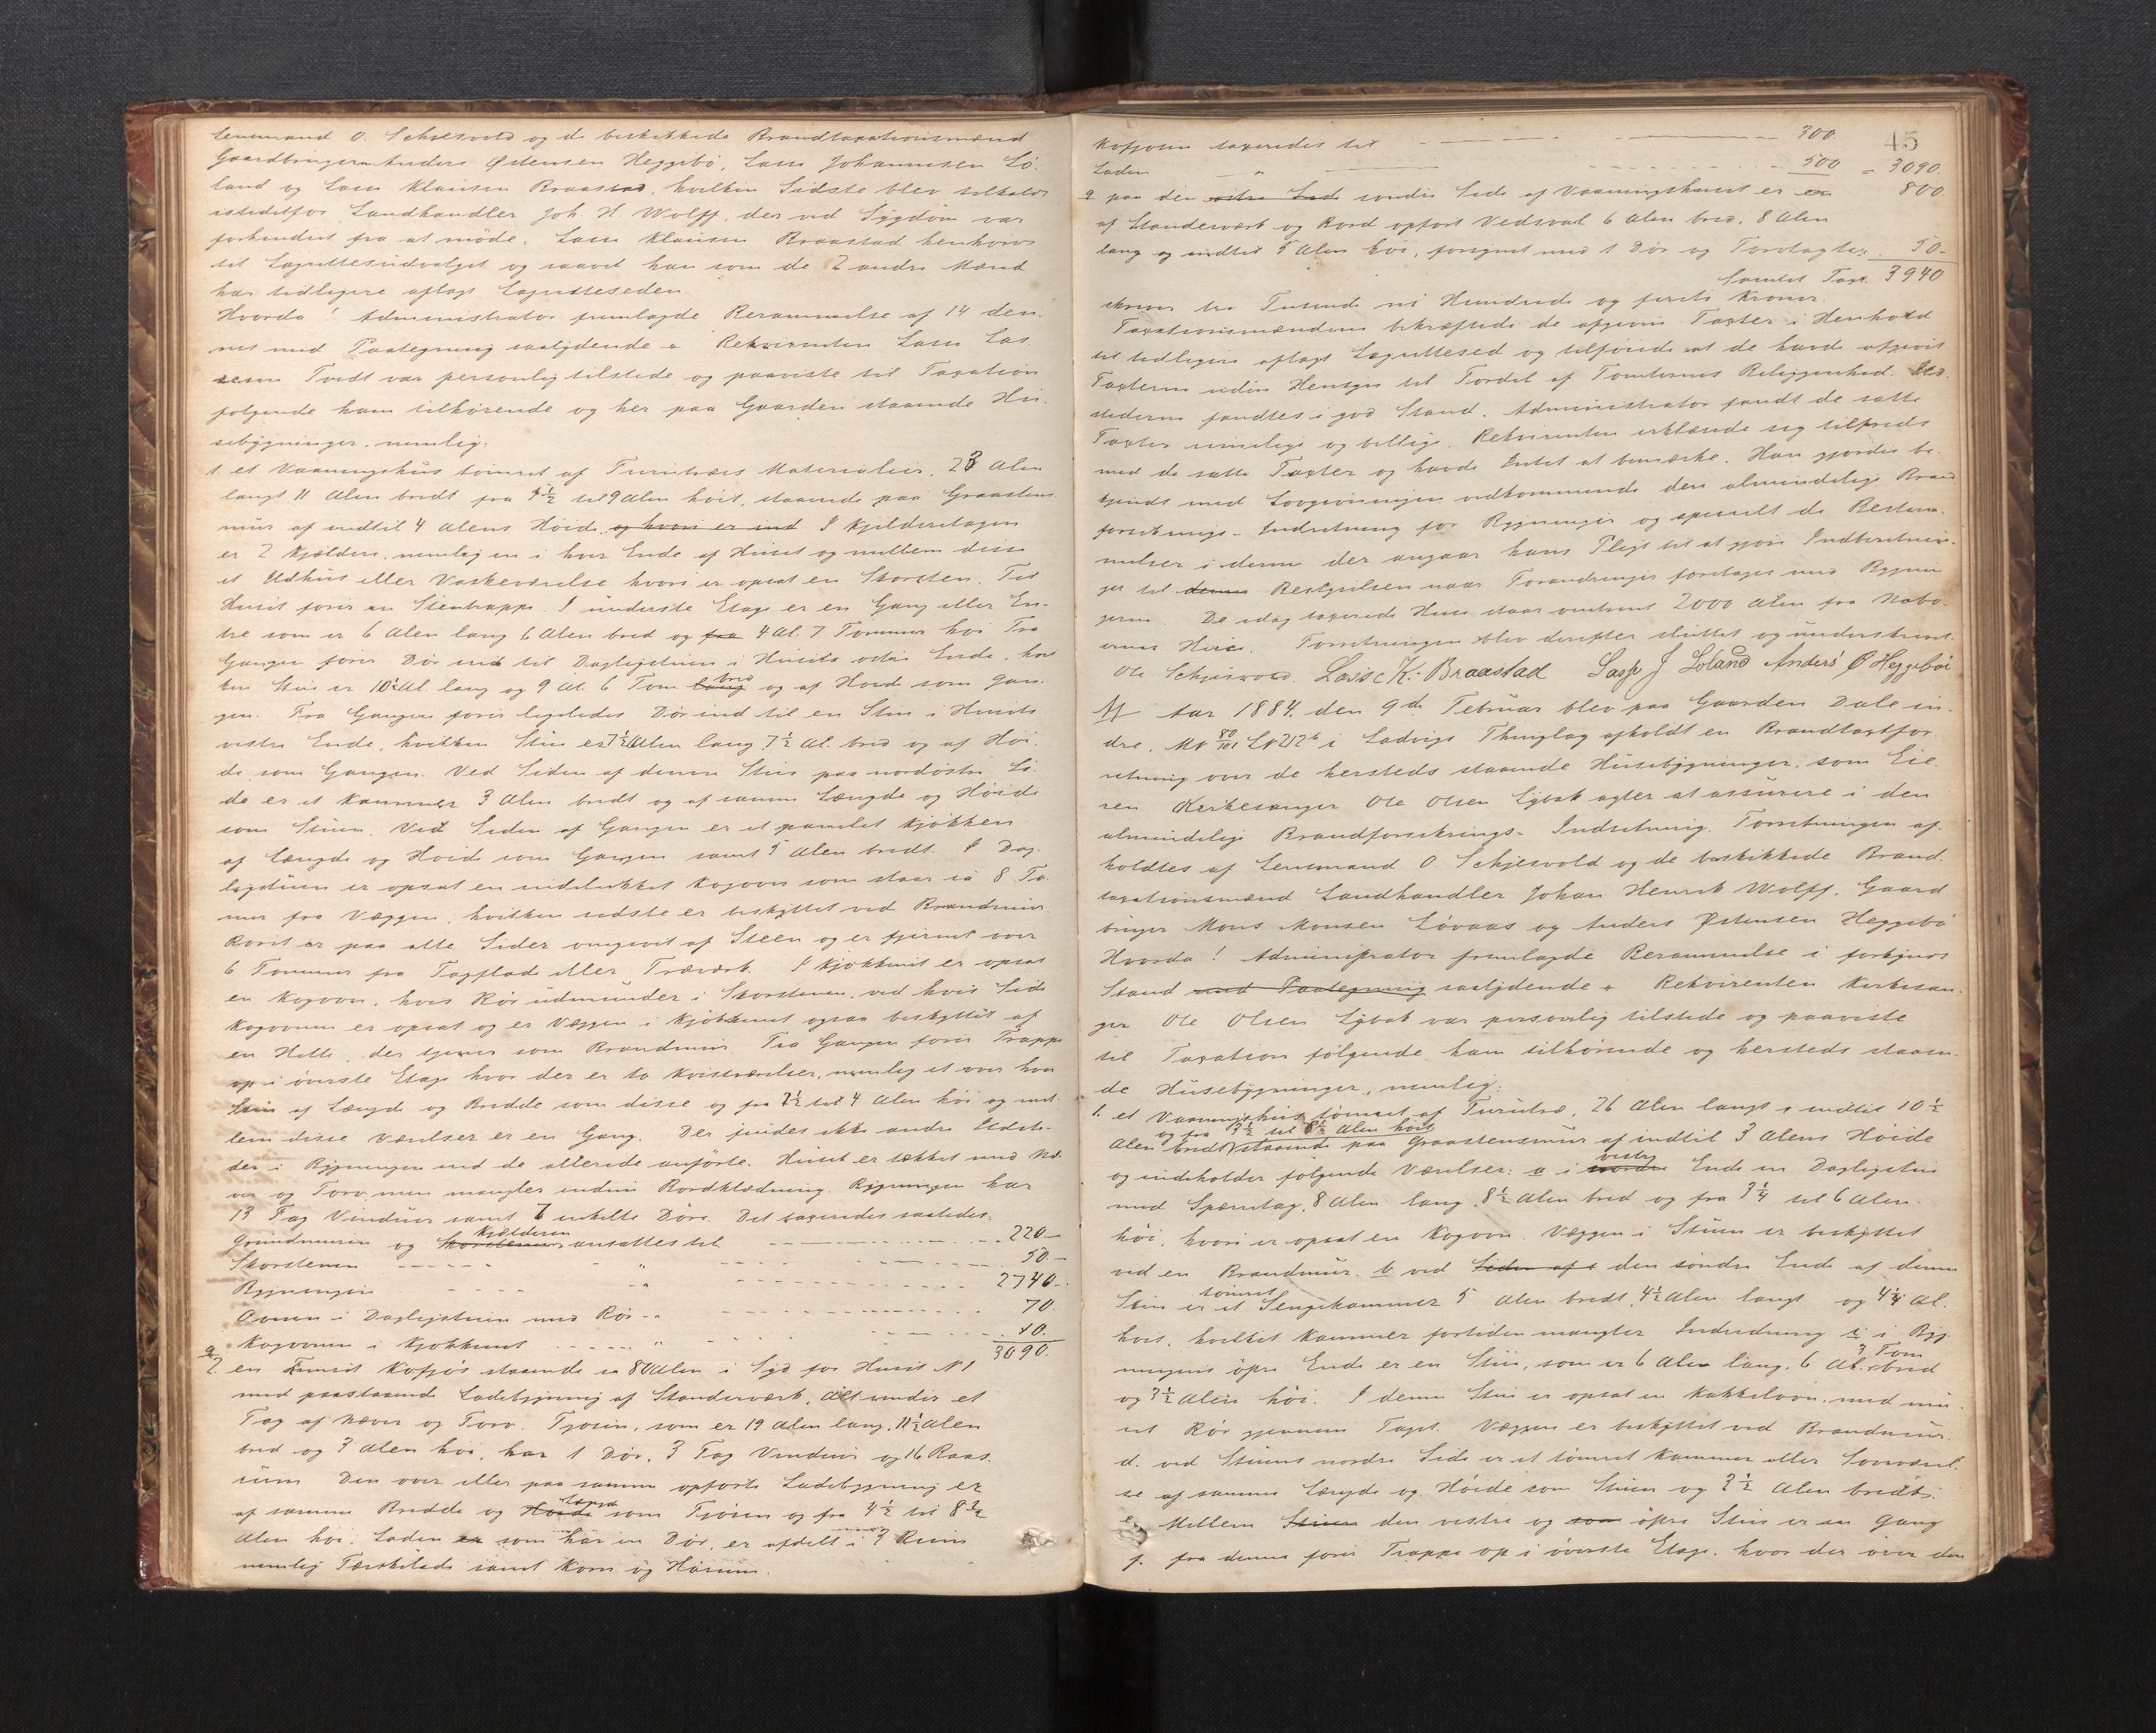 Lensmand O. Schjesvold og de beskikkede Brandtaxationsmænd
Gaardbrugerne Anders Østensen Heggebö, Lasse Johannesen Lö-
land og Lasse Klausen Braastad, hvilken Sidste blev tilkaldt
istedetfor Landhandler Joh. H. Wolff, der ved Sygdom var
forhindret fra at möde. Lasse Klausen Braastad henhører
til Lagrettesudvalget og saavel han som de 2 andre Mænd
har tidligere aflagt Lagretteseden.
Hvorda! Administrator fremlagde Berammelse af 14 den-
nes med Paategning saalydende Rekvirenten Lasse Las-
sesen Tvedt var personlig tilstede og paaviste til Taxation
følgende ham tilhørende og her paa Gaarden staaende Hu-
sebygninger, nemlig:
1. et Vaaningshus tømret af Furutræes Materialier, 23 Alen
langt 11 Alen bredt fra 4½ til 9 Alen höit, staaende paa Graastens
mur af indtil 4 Alens Höide, og hvori er ind I Kjelderetagen
er 2 Kjældere, nemlig en i hver Ende af Huset og mellem disse
et Udhus eller Vaskeværelse hvori er opsat en Skorsten. Til
Huset fører en Stentrappe. I underste Etage er en Gang eller En-
tre som er 6 Alen lang 6 Alen bred og fra 4 Al. 7 Tommer höi Fra
Gangen fører Dör ind til Dagligstuen i Husets østre Ende, hvil
ken Stue er 10 Al. lang og 9 Al. 6 Tom lang bred og af Höide som Gan-
gen. Fra Gangen fører ligeledes Dör ind til en Stue i Husets
vestre Ende, hvilken Stue er 7½ Alen lang 7½ Al. bred og af Höi-
de som Gangen. Ved Siden af denne Stue paa nordøstre Si-
de er et Kammer 3 Alen bredt og af samme Længde og Höide
som Stuen. Ved Siden af Gangen er et panelet Kjøkken
af Længde og Höide som Gangen samt 5 Alen bredt. I Dag-
ligstuen er opsat en indelukket Kogovn som staar ca 8 To-
mer fra Væggen, hvilken sidste er beskyttet ved Brandmur
Röret er paa alle Sider omgivet af Steen og er fjernet over
6 Tommer fra Tagflade eller Træværk. I Kjøkkenet er opsat
en Kogovn, hvis Rör udmunder i Skorstenen, ved hvis Side
Kogovnen er opsat og er Væggen i Kjøkkenet ogsaa beskyttet af
en Helle, der tjener som Brandmur. Fra Gangen fører Trappe
op i överste Etage hvor der er to Kvistværelser, nemlig et over hver
Stue af Længde og Bredde som disse og fra 2½ til 4 Alen höi og mel-
lem disse Værelser er en Gang. Der findes ikke andre Ildste-
der i Bygningen end de allerede anförte. Huset er tækket med Næ-
ver og Torv, men mangler endnu Bordklædning. Bygningen har
13 Fag Vinduer samt 7 enkelte Döre. Det taxeredes saaledes:
Grundmuren og Skorstenen Kjælderen ansattes til 220—
Skorstenen " 50.—
Bygningen " 2740—.
Ovnen i Dagligstuen med Rör 70.
Kogovnen i Kjøkkenet " 10.
3090.
2 en tømret Kofjøs staaende ca 80 Alen i Syd for Huset N 1
med paastaaende Ladebygning af Standerværk, Alt under et
Tag af Næver og Torv. Fjosen, som er 19 Alen lang, 11½ Alen
bred og 3 Alen höi, har 1 Dör, 3 Fag Vinduer og 16 Baas-
rum Den over eller paa samme opförte Ladebygning er
af samme Bredde og Höide Længd som Fjösen og fra 4½ til 8½
Alen höi. Laden er som har en Dör, er afdelt i 3 Rum
nemlig Tærskelade samt Korn og Hörum.
45
Kofjosen taxeredes til 300.
Laden " 500 = 3090.
800.
paa den østre Side søndre Side af Vaaningshuset er en
af Standerværk og Bord opfört Vedsval 6 Alen bred, 8 Alen
lang og indtil 5 Alen höi, forsynet med 1 Dör og Torvtag tax. 50-
Samlet Taxt. 3940
skriver tre Tusende ni Hundrede og förti Kroner.
Taxationsmændene bekræftede de afgivne Taxter i Henhold
til tidligere aflagt Lagrettesed og tilføiede at de havde afgivet
Taxterne uden Hensyn til Fordel af Tomternes Beliggenhed. Ild-
stederne fandtes i god Stand. Administrator fandt de satte
Taxter rimelige og billige. Rekvirenten erklærede sig tilfreds
med de satte Taxter og havde Intet at bemærke. Han gjordes be-
kjendt med Lovgivningen vedkommende den almindelige Brand
forsikrings-Indretning for Bygninger og specielt de Bestem-
melser i denne der angaar hans Pligt til at gjöre Indberetnin-
ger til denne Bestyrelsen naar Forandringer foretages med Bygnin-
gerne. De idag taxerede Huse staar omtrent 2000 Alen fra Nabo-
ernes Huse. Forretningen blev derefter sluttet og underskrevet.
Ole Schjesvold. Lasse K. Braastad Lasse J Loland Anders Ø Heggebøe
Aar 1884. den 9de Februar blev paa Gaarden Dale in-
dre, M No 80/101 L No 212b i Ladvigs Thinglag afholdt en Brandtaxtfor-
retning over de hersteds staaende Husebygninger, som Eie-
ren Kirkesanger Ole Olsen Lÿbak agter at assurere i den
almindelige Brandforsikrings-Indretning. Forretningen af-
holdtes af Lensmand O. Schjesvold og de beskikkede Brand-
taxationsmænd Landhandler Johan Henrik Wolff, Gaard
bruger Mons Monsen Lövaas og Anders Østensen Heggebö
Hvorda! Administrator fremlagde Berammelse i forkynt
Stand med Paategning saalydende Rekvirenten Kirkesan-
ger Ole Olsen Lÿbak var personlig tilstede og paaviste
til Taxation følgende ham tilhørende og hersteds staaen-
de Husebygninger, nemlig:
1. et Vaaningshus tömret af Furutræ, 26 Alen langt indtil 10½
Alen bredt og fra 3½ til 8½ Alen höit staaende paa Graastensmur af indtil 3 Alens Höide
og indeholder følgende Værelser: a i nordre vestre Ende en Dagligstue
med Sperretag, 8 Alen lang, 8½ Alen bred og fra 3¼ til 6 Alen
höi, hvori er opsat en Kogovn. Væggen i Stuen er beskyttet
ved en Brandmur. b. ved Siden af den søndre Ende af denne
Stue er et tömret Sengekammer 5 Alen bredt, 4½ Alen langt og 4¼ Al.
höit, hvilket Kammer fortiden mangler Indredning c. i Byg-
ningens öpre Ende er en Stue, som er 6 Alen lang, 6 Al. 3 Tom bred
og 3½ Alen höi. I denne Stue er opsat en Kakkelovn, med mu-
ret Rör gjennem Taget. Væggen er beskyttet ved Brandmur.
d. ved Stuens nordre Side er et tömret Kammer eller Soveværel-
se af samme Længde og Höide som Stuen og 3½ Alen bredt.
e. Mellem Stuen den vestre og öpre Stue er en Gang
f. fra denne fører Trappe op i överste Etage, hvor der over den